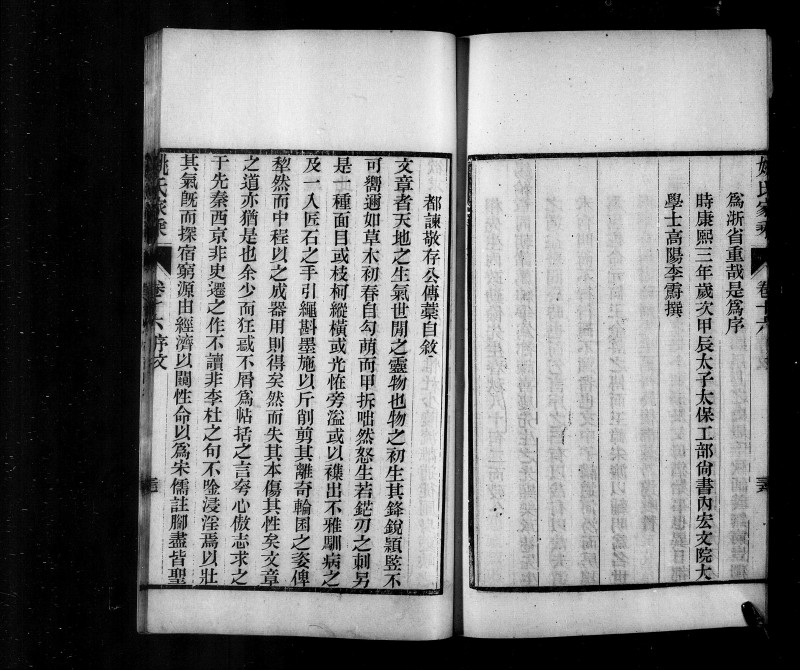 爲浙省重哉是爲序
時康熙三年歲次甲辰太子太保工部尙書內宏文院大
學士高陽李霨撰
都諫敬存公傳藁自敘
文章者天地之生氣世閒之靈物也物之初生其鋒銳穎豎不
可嚮邇如草木初春自勾萌而甲拆咄然怒生若鋩刃之刺另
是一種面目或枝柯縱橫或光怪旁溢或以穠出不雅馴病之
及一入匠石之手引繩斟墨施以斤削剪其離奇輪囷之姿俾
犂然而中程以之成器用則得矣然而失其本傷其性矣文章
之道亦猶是也余少而狂惑不屑爲帖括之言夸心倣志求之
于先秦西京非史遷之作不讀非李杜之句不唫浸淫焉以壯
其氣旣而探宿窮源由經濟以闚性命以爲宋儒註腳盡皆聖
姚氏家乘
卷十六序文